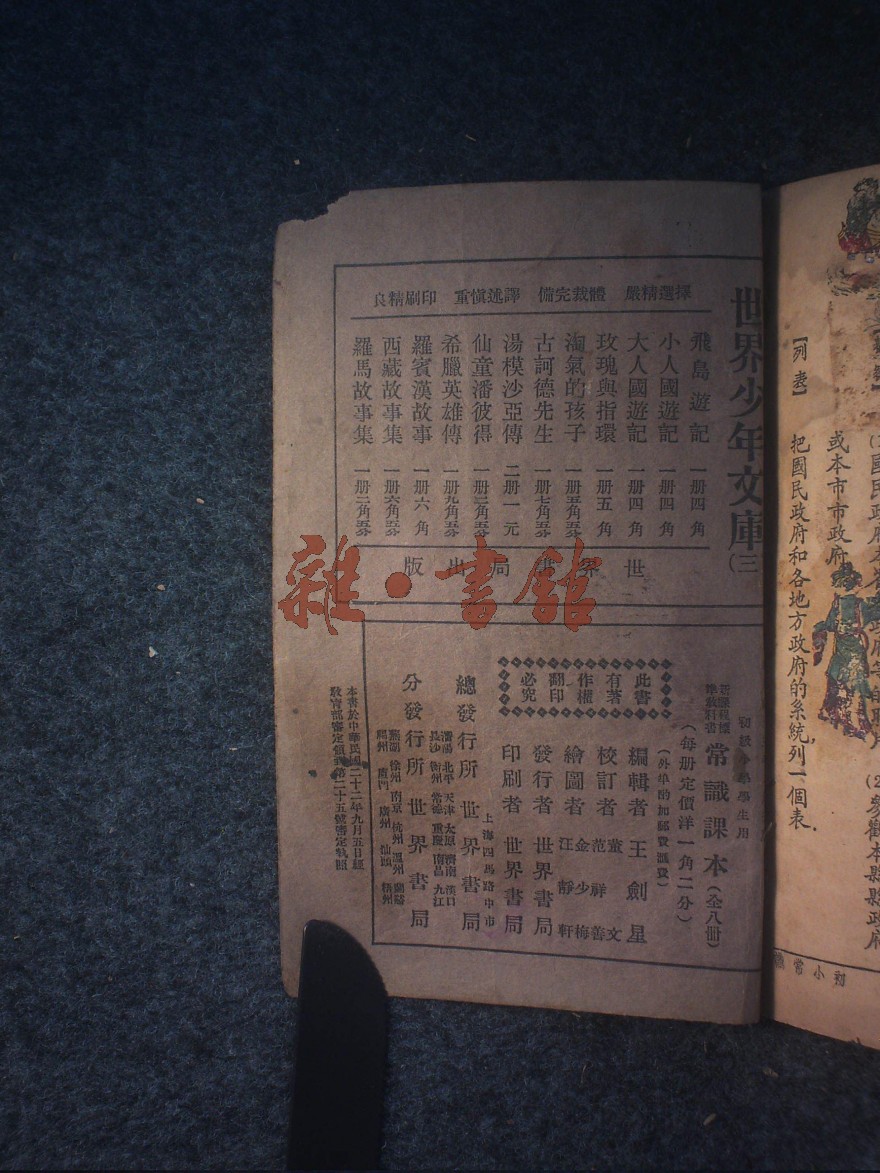 世界少年文庫(三
擇選精嚴 體裁完備 譯述愼重 印刷精良
飛島遊記 一册四角
小人國遊記 一册四角
大人國遊記 一册四角
玫瑰與指環 一册五角
淘氣的孩子 一册五角五分
古訶德先生 一册七角五分
湯模沙亞傳 二册一元
仙童潘彼得 一册三角五分
希臘英雄傳 一册九角五分
羅賓漢故事 一册六角
西藏故事集 一册六角五分
羅馬故事集 一册二角五分
世界書局出版
雜·書館
初級小學學生用
新課程標準教科書 常識課本(全八册)
(每册定價洋一角二分)
(外埠酌加郵費匯費)
編輯者 王劍星
校訂者 董文 范祥善
繪圖者 金少梅 汪靜軒
發行者 世界書局
印刷者 世界書局
此書
有著
作權
翻印
必究
上海四馬路中市
總發行所 世界書局
瀋陽 北平 天津 太原 濟南 漢口
長沙 衡州 常德 重慶 南昌 九江
分發行所 世界書局
蕪湖 徐州 南京 杭州 溫州 蘭谿
福州 廈門 廣州 汕頭 梧州
本書於中華民國二十二年九月五日經
教育部審定領到第二十五號審定執照
國民政府
或本市市政府
【列表】 把國民政府和各地方政府的系統列一個表.
參觀本縣縣政府
初小常識